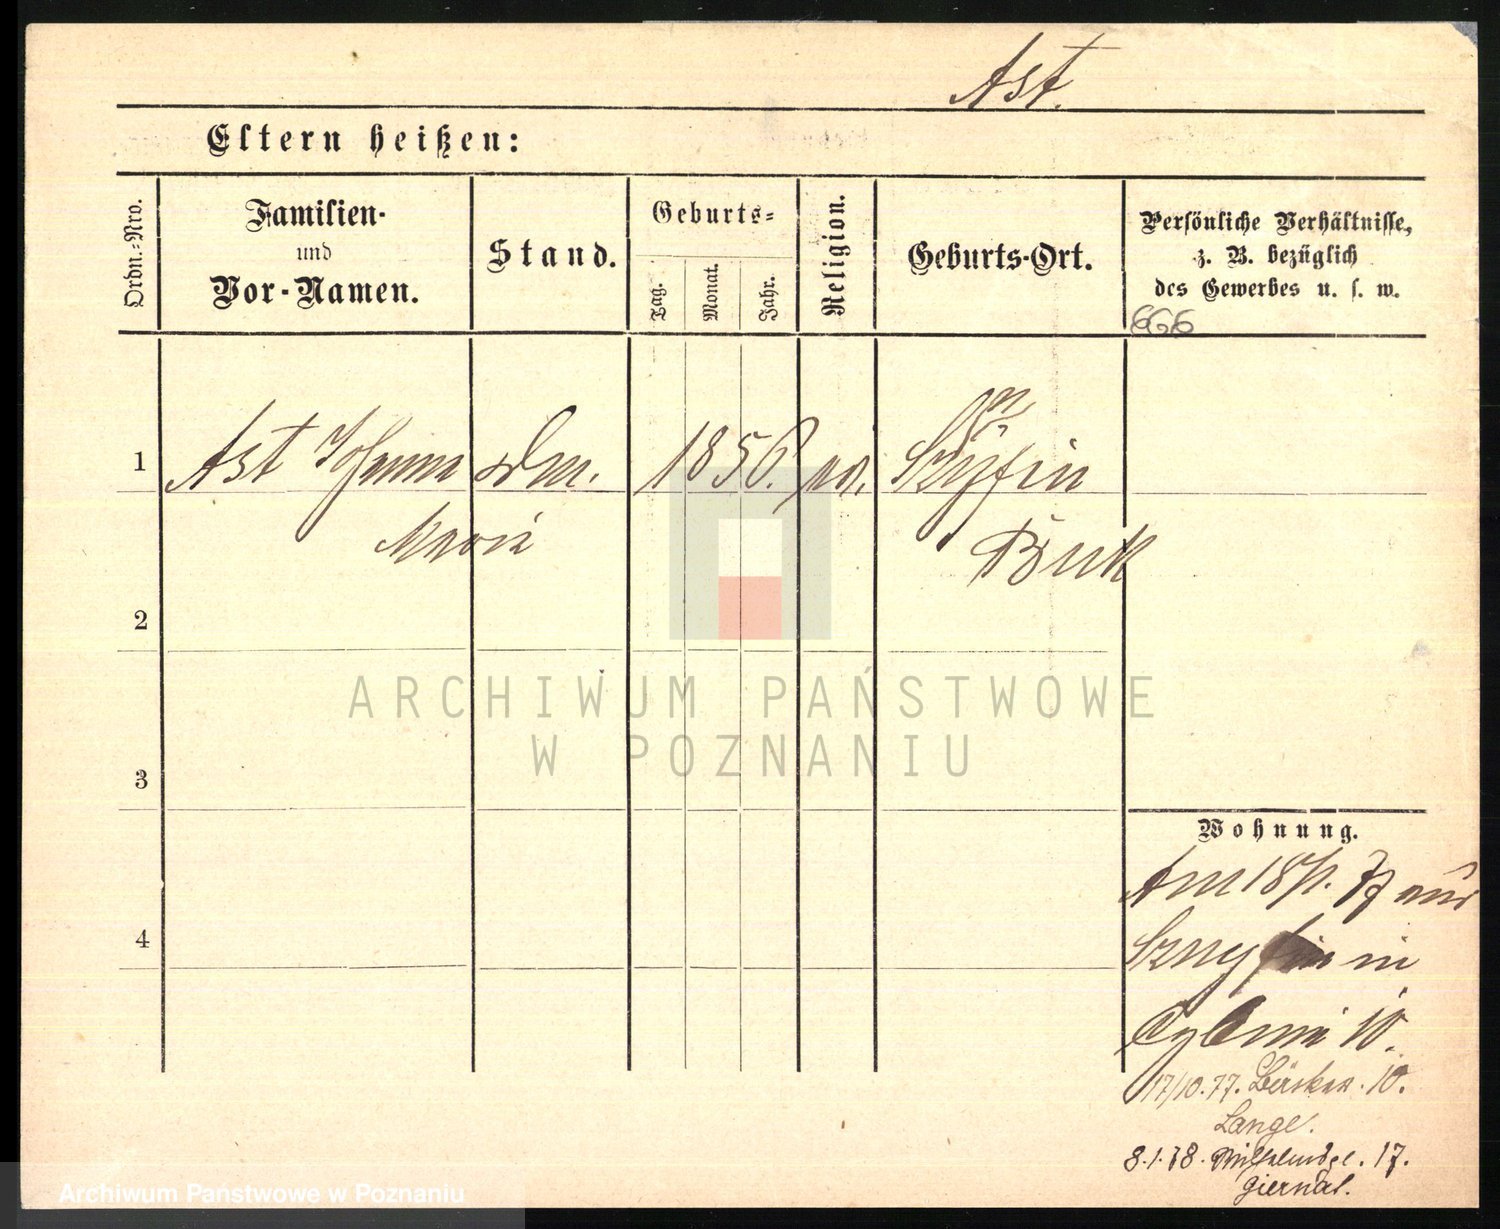 Ast.
Eltern heißen:
Ordn.=Nro.
Familien-
und
Vor-Namen.
Stand.
Geburts=
Tag.
Monat.
Jahr.
Religion.
Geburts-Ort.
Persönliche Verhältnisse,
z. B. bezüglich
des Gewerbes u. s. w.
666
1
Ast Johanna
Maria
1856.
Buk
2
3
4
Wohnung.
Am 18/1. 77 aus
in
10.
17/10.77. Bäcker. 10.
Lange.
8.1.78. 17.
ARCHIWUM PAŃSTWOWE
W POZNANIU
Archiwum Państwowe w Poznaniu